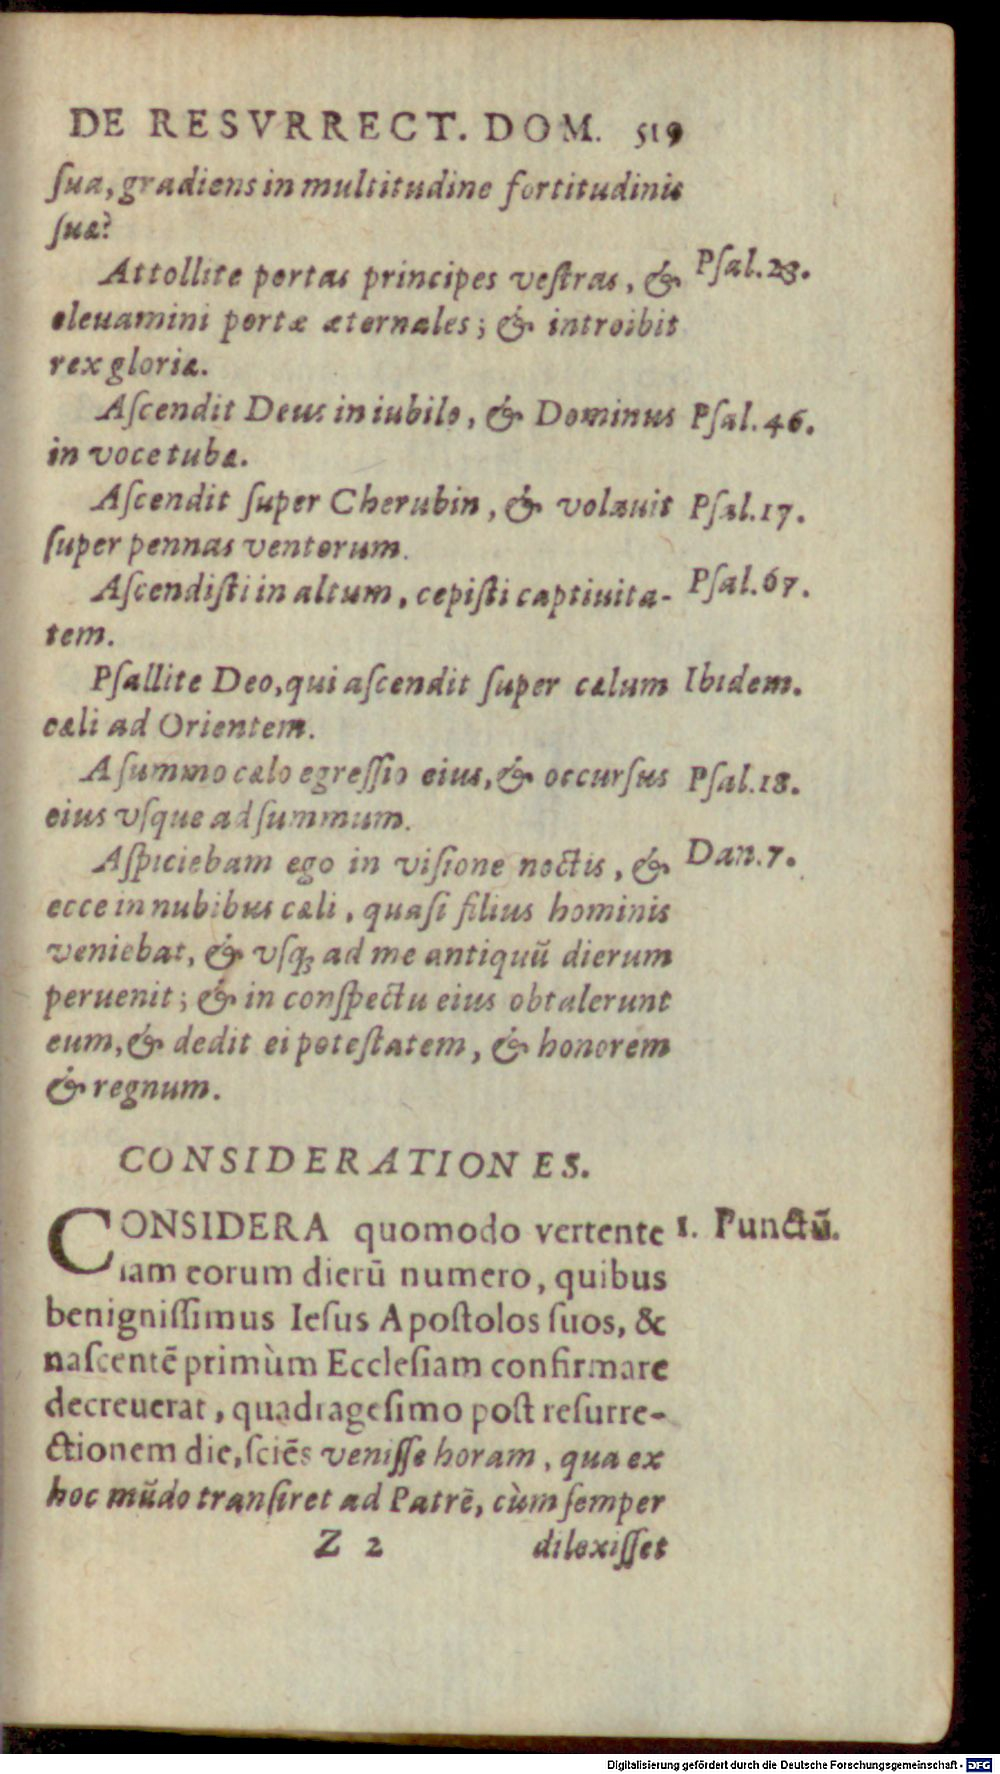 DE RESVRRECT. DOM. 519
ſua, gradiens in multitudine fortitudinis
ſuæ?
Attollite portas principes veſtras, & Pſal. 23.
eleuamini portæ æternales; & introibit
rex gloriæ.
Aſcendit Deus in iubilo, & Dominus Pſal. 46.
in voce tubæ.
Aſcendit ſuper Cherubin, & volauit Pſal. 17.
ſuper pennas ventorum.
Aſcendiſti in altum, cepiſti captiuita- Pſal. 67.
tem.
Pſallite Deo, qui aſcendit ſuper cælum Ibidem.
cæli ad Orientem.
A ſummo cælo egreſſio eius, & occurſus Pſal. 18.
eius vſque ad ſummum.
Aſpiciebam ego in viſione noctis, & Dan. 7.
ecce in nubibus cæli, quaſi filius hominis
veniebat, & vſq; ad me antiquũ dierum
peruenit; & in conſpectu eius obtalerunt
eum, & dedit ei poteſtatem, & honorem
& regnum.
CONSIDERATIONES.
CONSIDERA quomodo vertente 1. Punctũ.
iam eorum dierũ numero, quibus
benigniſſimus Ieſus Apoſtolos ſuos, &
naſcentẽ primùm Eccleſiam confirmare
decreuerat, quadrageſimo poſt reſurre-
ctionem die, ſciẽs veniſſe horam, qua ex
hoc mũdo tranſiret ad Patrẽ, cùm ſemper
Z 2 dilexiſſet
Digitalisierung gefördert durch die Deutsche Forschungsgemeinschaft - DFG